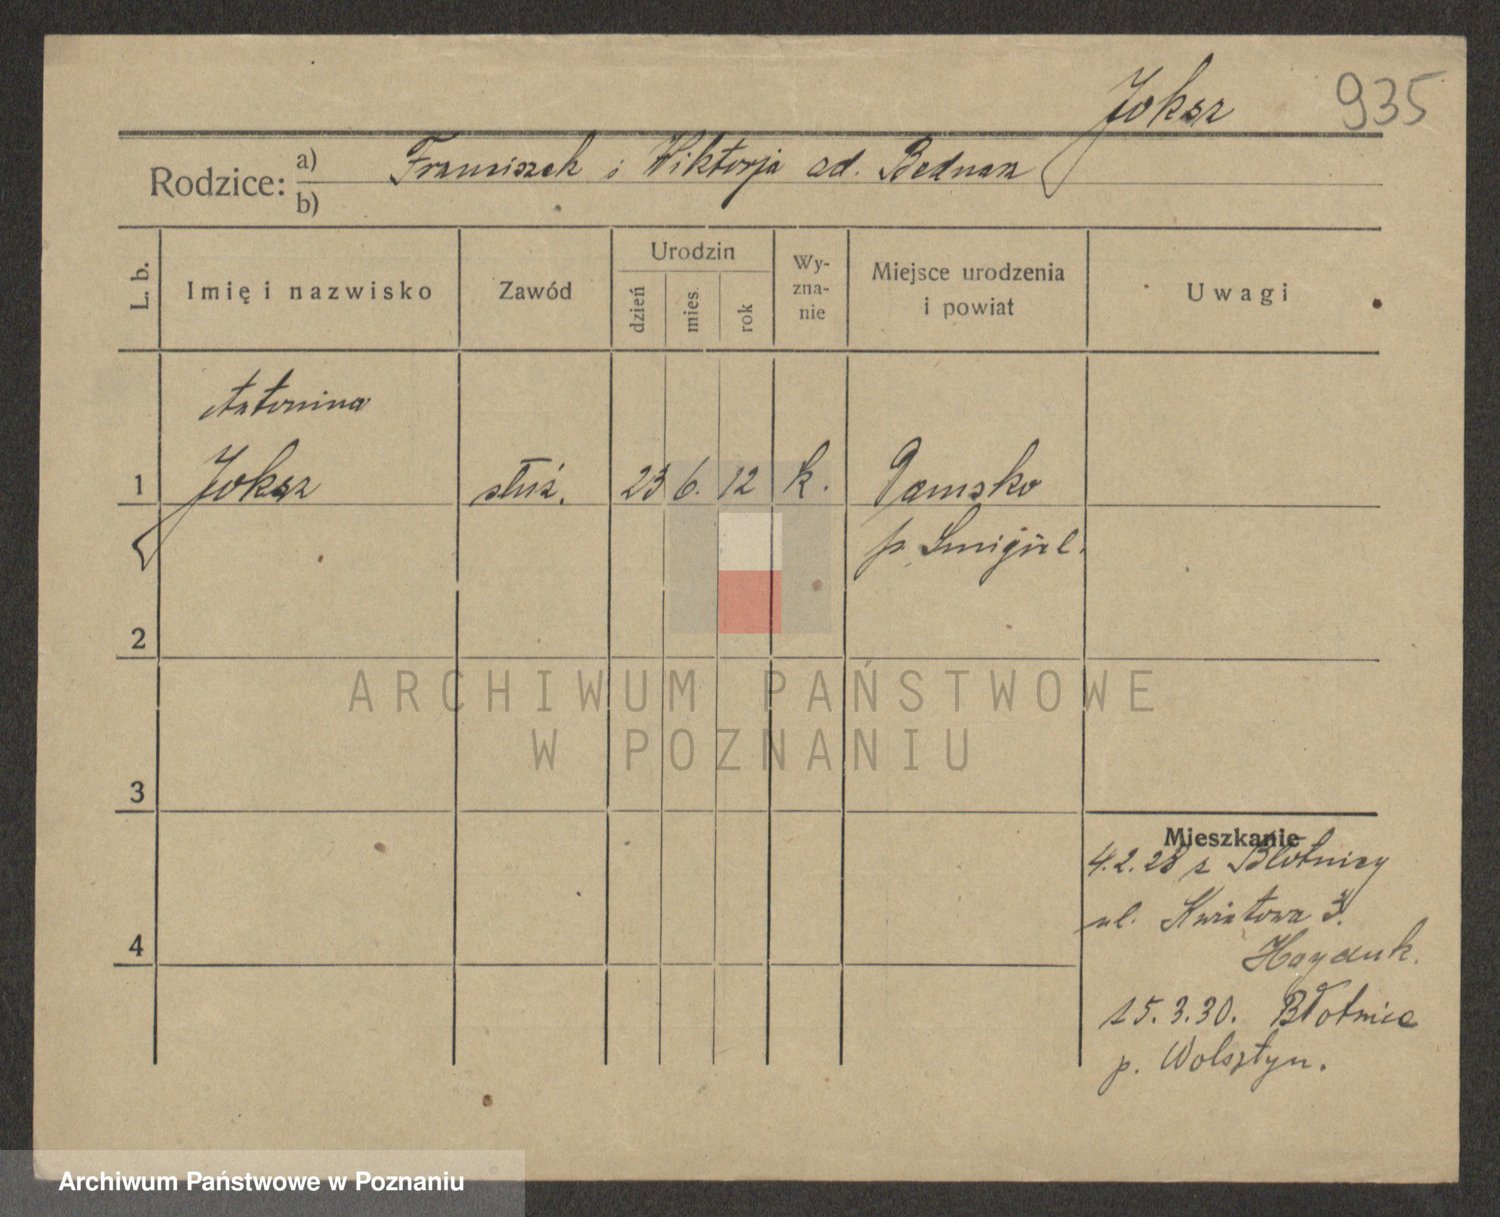 Joksz 935
Rodzice: a) Franciszek i Wiktorja ad. Bednarz
b)
L. b. Imię i nazwisko Zawód Urodzin dzień mies. rok Wy-zna-nie Miejsce urodzenia i powiat Uwagi
Antonina
1 Joksz służ. 23 6. 12 k. Gamsko
p. Śmigiel.
2
ARCHIWUM PAŃSTWOWE
W POZNANIU
3
Mieszkanie
4.2.28 z Błotnicy
ul. Kwiatowa 3.
4
Hayduk.
15.3.30. Błotnica
p. Wolsztyn.
Archiwum Państwowe w Poznaniu